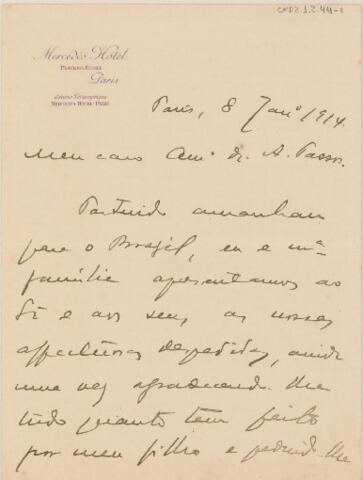 Mercedès Hotel
Paris
Adresse Télégraphique
Mercedes-Hotel-Paris
Paris, 8 Janº 1914.
Meu caro Amº dr. A. Passos.
Partindo amanhan
para o Brazil, eu e mª
familia apresentamos ao
Sr e aos seus as nossas
affectuosas despedidas, ainda
uma vez agradecendo-lhe
tudo quanto tem feito
por meu filho e pedindo-lhe